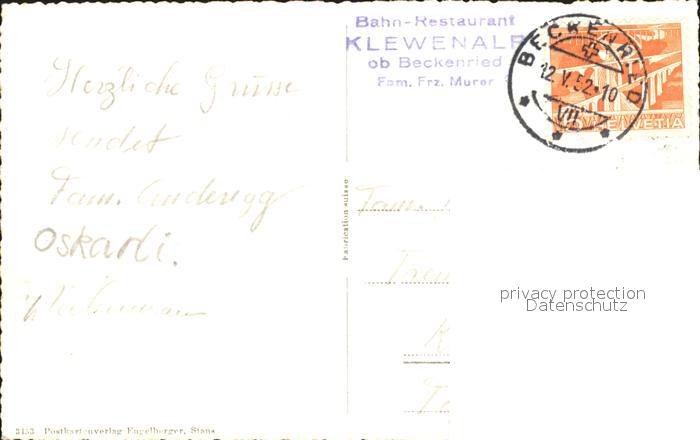 Bahn-Restaurant
KLEWENALP
ob Beckenried
Fam. Frz. Murer
BECKENRIED
12.V.52-10
VII
HELVETIA
Herzliche Grüsse
sendet
Fam. Anderegg
Oskarli.
Fabrication suisse
Fam.
privacy protection
Datenschutz
3153 Postkartenverlag Engelberger, Stans